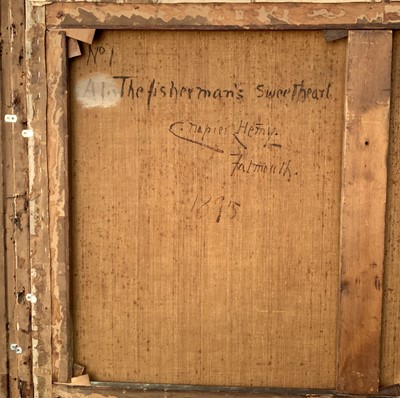 No 1
The fisherman's Sweetheart
C Napier Hemy.
Falmouth.
1895